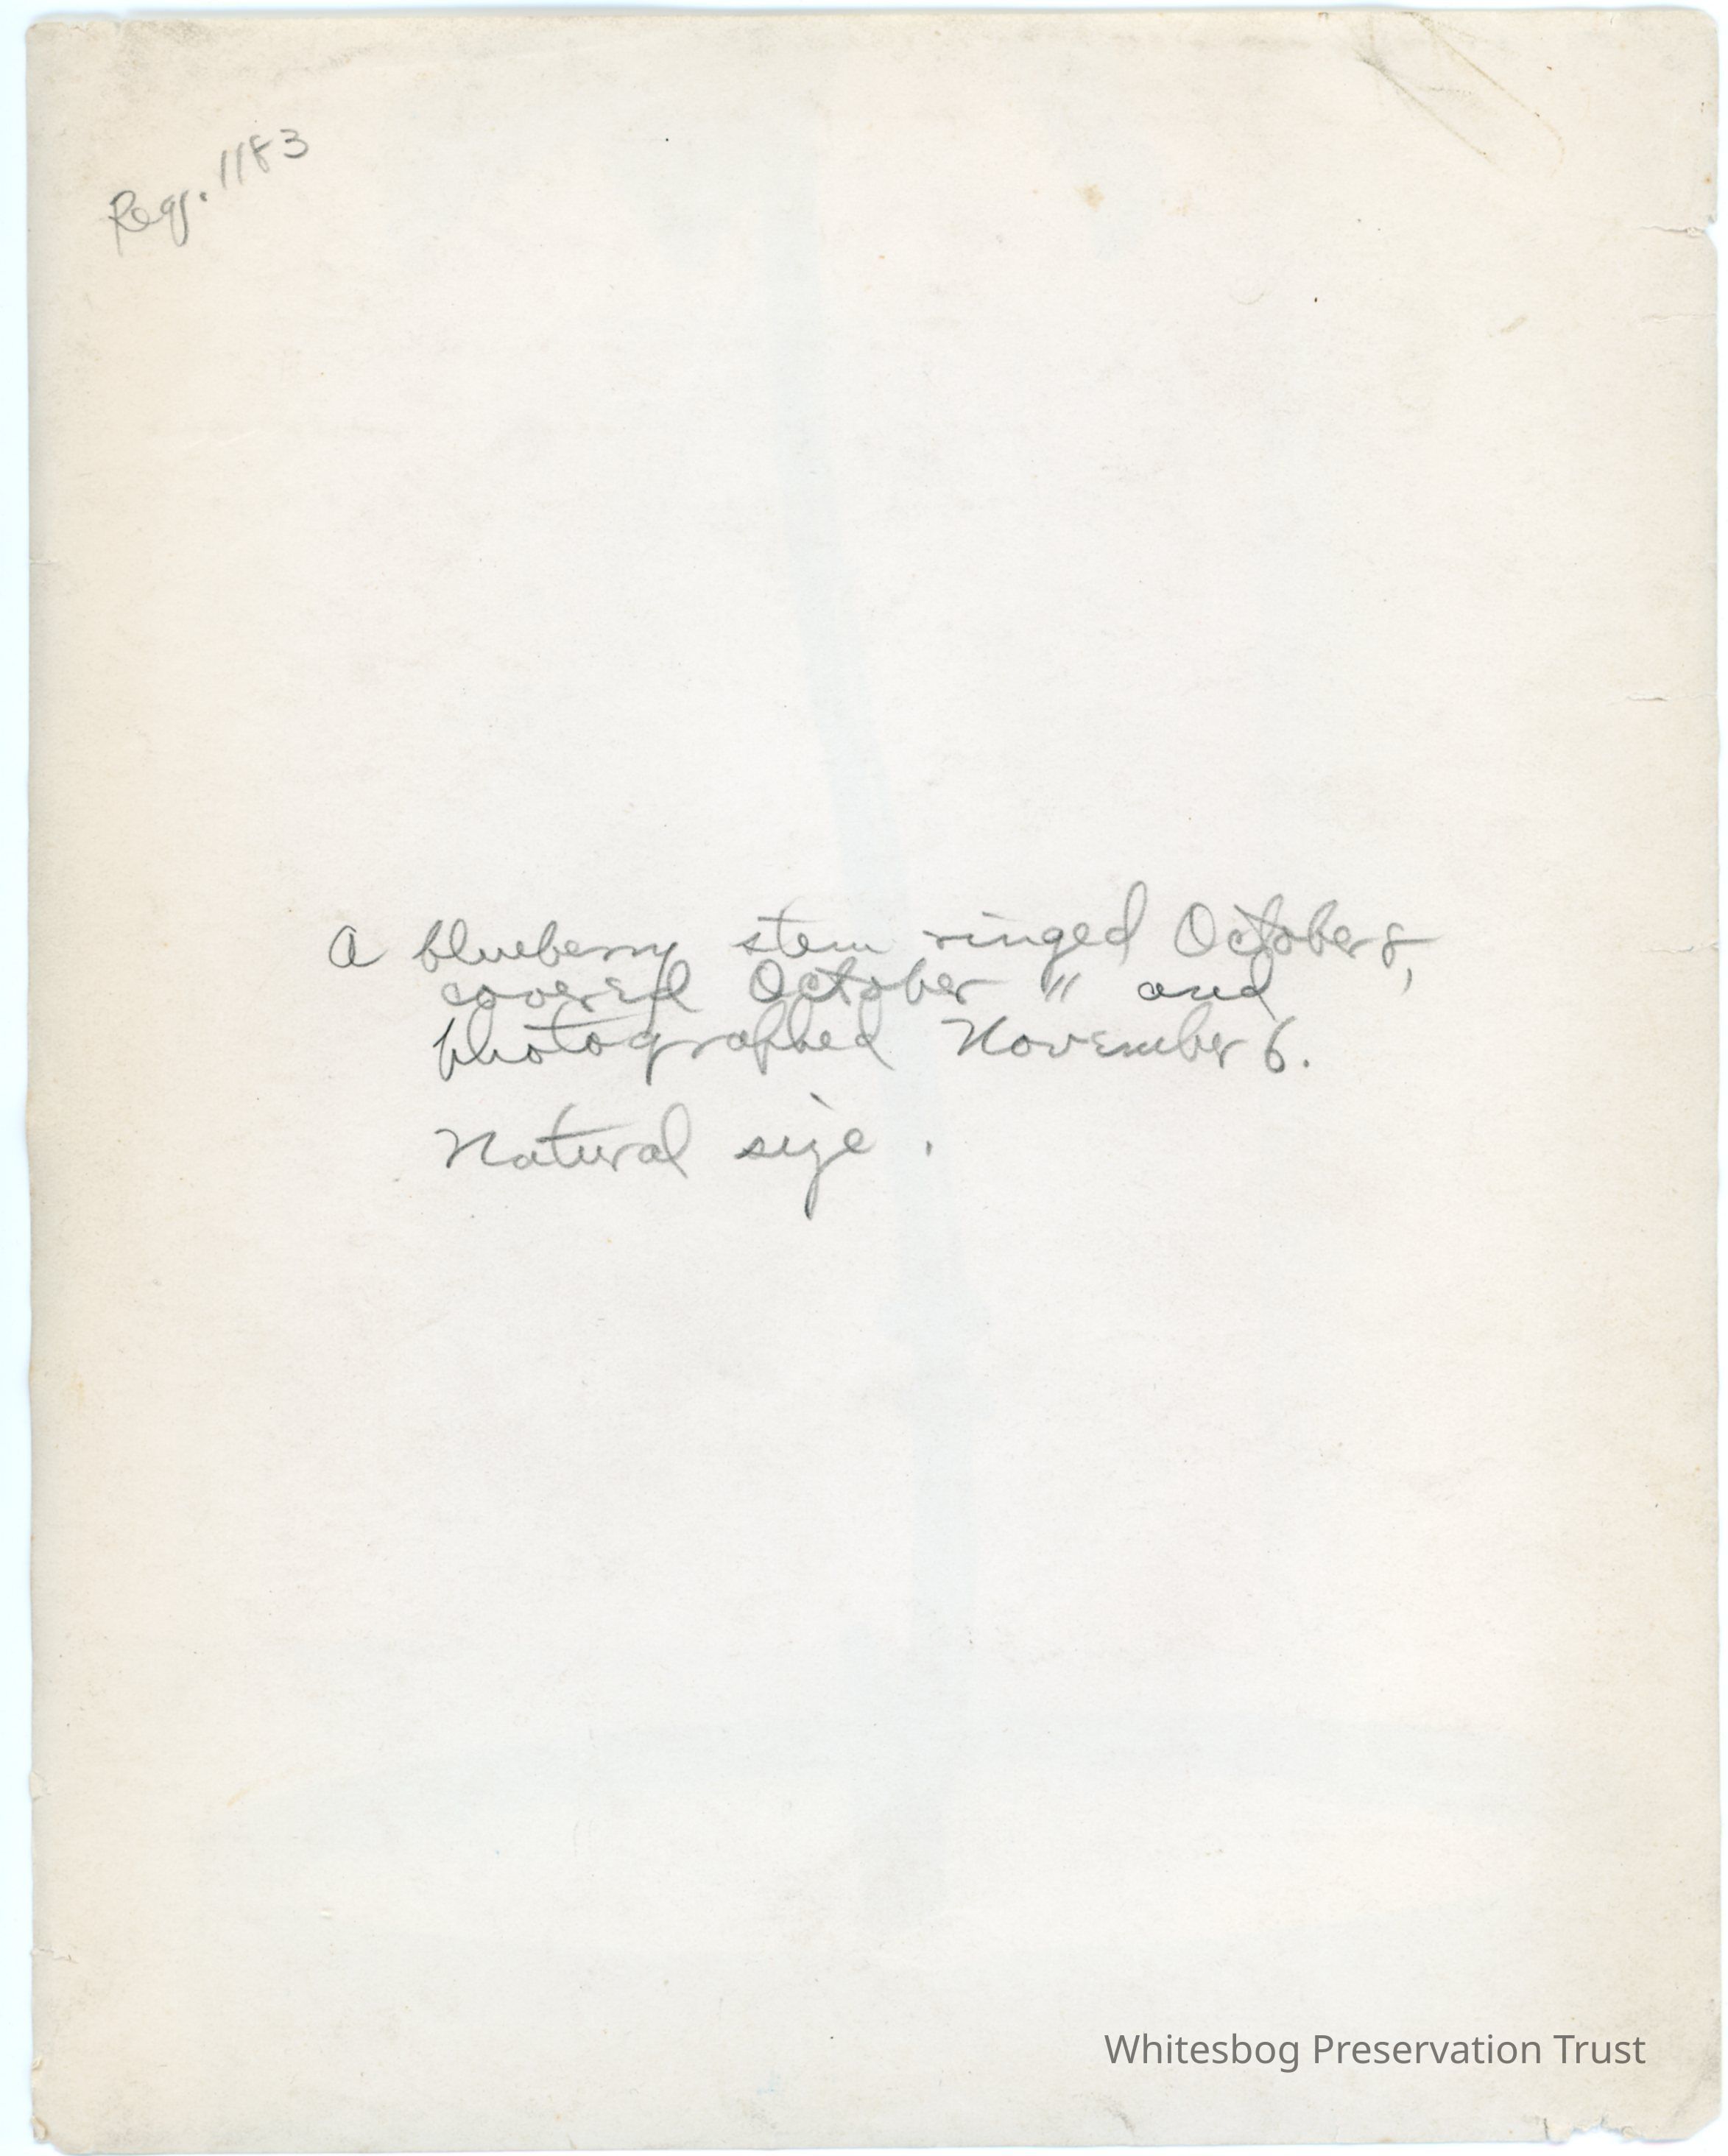 Reg. 1183
A blueberry stem ringed October 8,
covered October 11 and
photographed November 6.
Natural size.
Whitesbog Preservation Trust